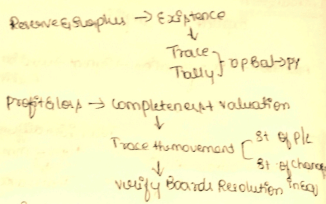 Reserve & Surplus → Existance
↓
Trace
Tally } OP Bal → PY
Profit & Loss → Completeness & Valuation
↓
Trace the movement [ St of P/L
St of Change in Eq)
↓
Verify Boards Resolution